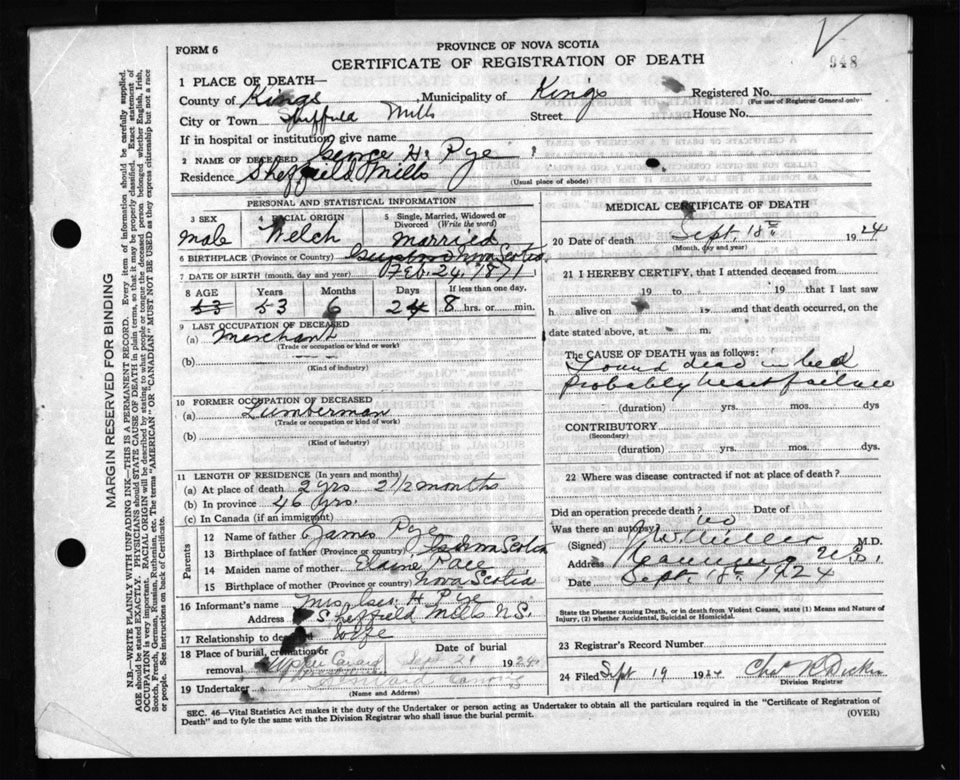 948
PROVINCE OF NOVA SCOTIA
FORM 6
CERTIFICATE OF REGISTRATION OF DEATH
1 PLACE OF DEATH—
County of Kings, Municipality of Kings Registered No.
(For use of Registrar General only)
City or Town Sheffield Mills Street House No.
If in hospital or institution give name
2 NAME OF DECEASED George H. Pye
Residence Sheffield Mills
(Usual place of abode)
PERSONAL AND STATISTICAL INFORMATION
3 SEX
Male
4 RACIAL ORIGIN
Welch
5 Single, Married, Widowed or Divorced (Write the word)
Married
6 BIRTHPLACE (Province or Country) Nova Scotia
7 DATE OF BIRTH (month, day and year) Feb. 24, 1871
8 AGE Years Months Days If less than one day.
53 53 6 24 8 hrs. or min.
9 LAST OCCUPATION OF DECEASED
(a) Merchant
(Trade or occupation or kind or work)
(b)
(Kind of industry)
10 FORMER OCCUPATION OF DECEASED
(a) Lumberman
(Trade or occupation or kind of work)
(b)
(Kind of industry)
11 LENGTH OF RESIDENCE (In years and months)
(a) At place of death 2 yrs 2 1/2 months
(b) In province 46 yrs.
(c) In Canada (if an immigrant)
Parents
12 Name of father James Pye
13 Birthplace of father (Province or country) Nova Scotia
14 Maiden name of mother Elaine
15 Birthplace of mother (Province or country) Nova Scotia
16 Informant's name Mrs Geo. H Pye
Address Sheffield Mills N.S.
17 Relationship to deceased Wife
18 Place of burial, cremation or removal Upper Canard
Date of burial
Sept 21 1924
19 Undertaker
(Name and Address)
MEDICAL CERTIFICATE OF DEATH
20 Date of death Sept. 18th 1924
(Month, day and year)
21 I HEREBY CERTIFY, that I attended deceased from
19 to 19 that I last saw
h alive on 19 and that death occurred, on the
date stated above, at m.
The CAUSE OF DEATH was as follows:
Found dead in bed
probably heart failure
(duration) yrs. mos. dys
CONTRIBUTORY
(Secondary)
(duration) yrs. mos. dys.
22 Where was disease contracted if not at place of death?
Did an operation precede death? Date of
Was there an autopsy? no
(Signed) Miller M.D.
Address
Date Sept. 18th 1924
State the Disease causing Death, or in death from Violent Causes, state (1) Means and Nature of
Injury, (2) whether Accidental, Suicidal or Homicidal.
23 Registrar's Record Number
24 Filed Sept 19 1924
Division Registrar
SEC. 46—Vital Statistics Act makes it the duty of the Undertaker or person acting as Undertaker to obtain all the particulars required in the "Certificate of Registration of
Death" and to fyle the same with the Division Registrar who shall issue the burial permit.
(OVER)
MARGIN RESERVED FOR BINDING
N.B.—WRITE PLAINLY WITH UNFADING INK—THIS IS A PERMANENT RECORD. Every item of information should be carefully supplied.
AGE should be stated EXACTLY. PHYSICIANS should STATE CAUSE OF DEATH in plain terms, so that it may be properly classified. Exact statement of
OCCUPATION is very important. RACIAL ORIGIN will be described by stating to what people or tongue the deceased person belonged whether English, Irish,
Scotch, French, German, Russian, Ruthenian, etc. The terms "AMERICAN" OR "CANADIAN" MUST NOT BE USED as they express citizenship but not a race
or people. See instructions on back of Certificate.